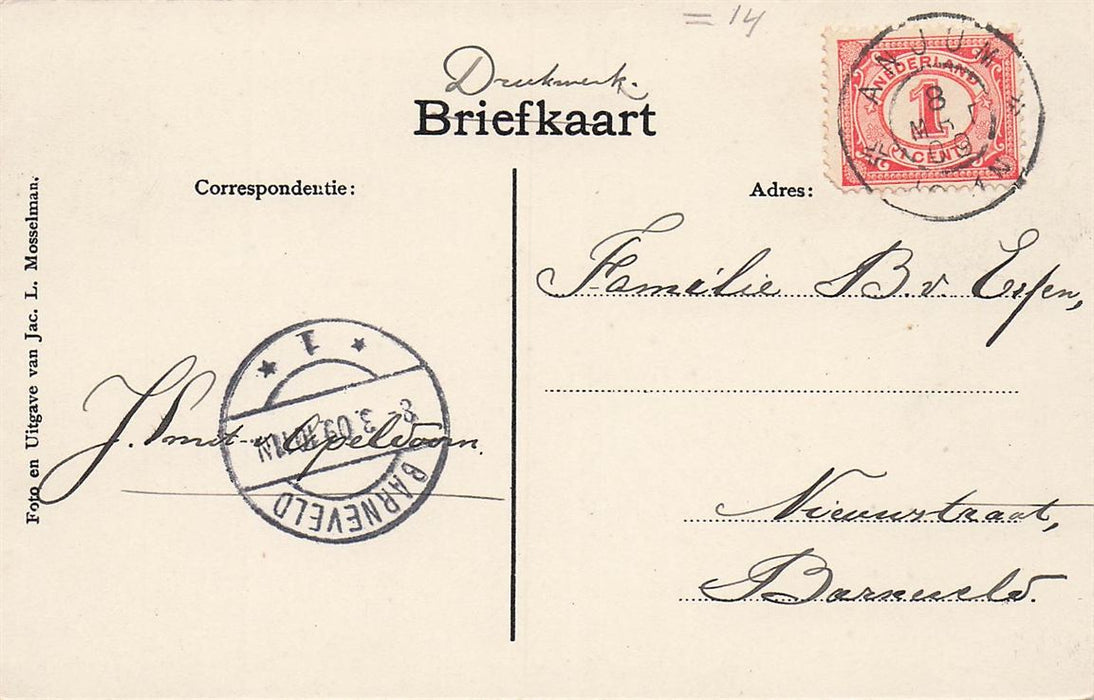 = 14
Drukwerk.
Briefkaart
ANJUM
NEDERLAND
1
CENT
8
09
Correspondentie:
Adres:
Familie B. v. Essen,
J. Smit-v Apeldoorn.
1
8- 3. 09. 10-11N
BARNEVELD
Nieuwstraat,
Barneveld.
Foto en Uitgave van Jac. L. Mosselman.